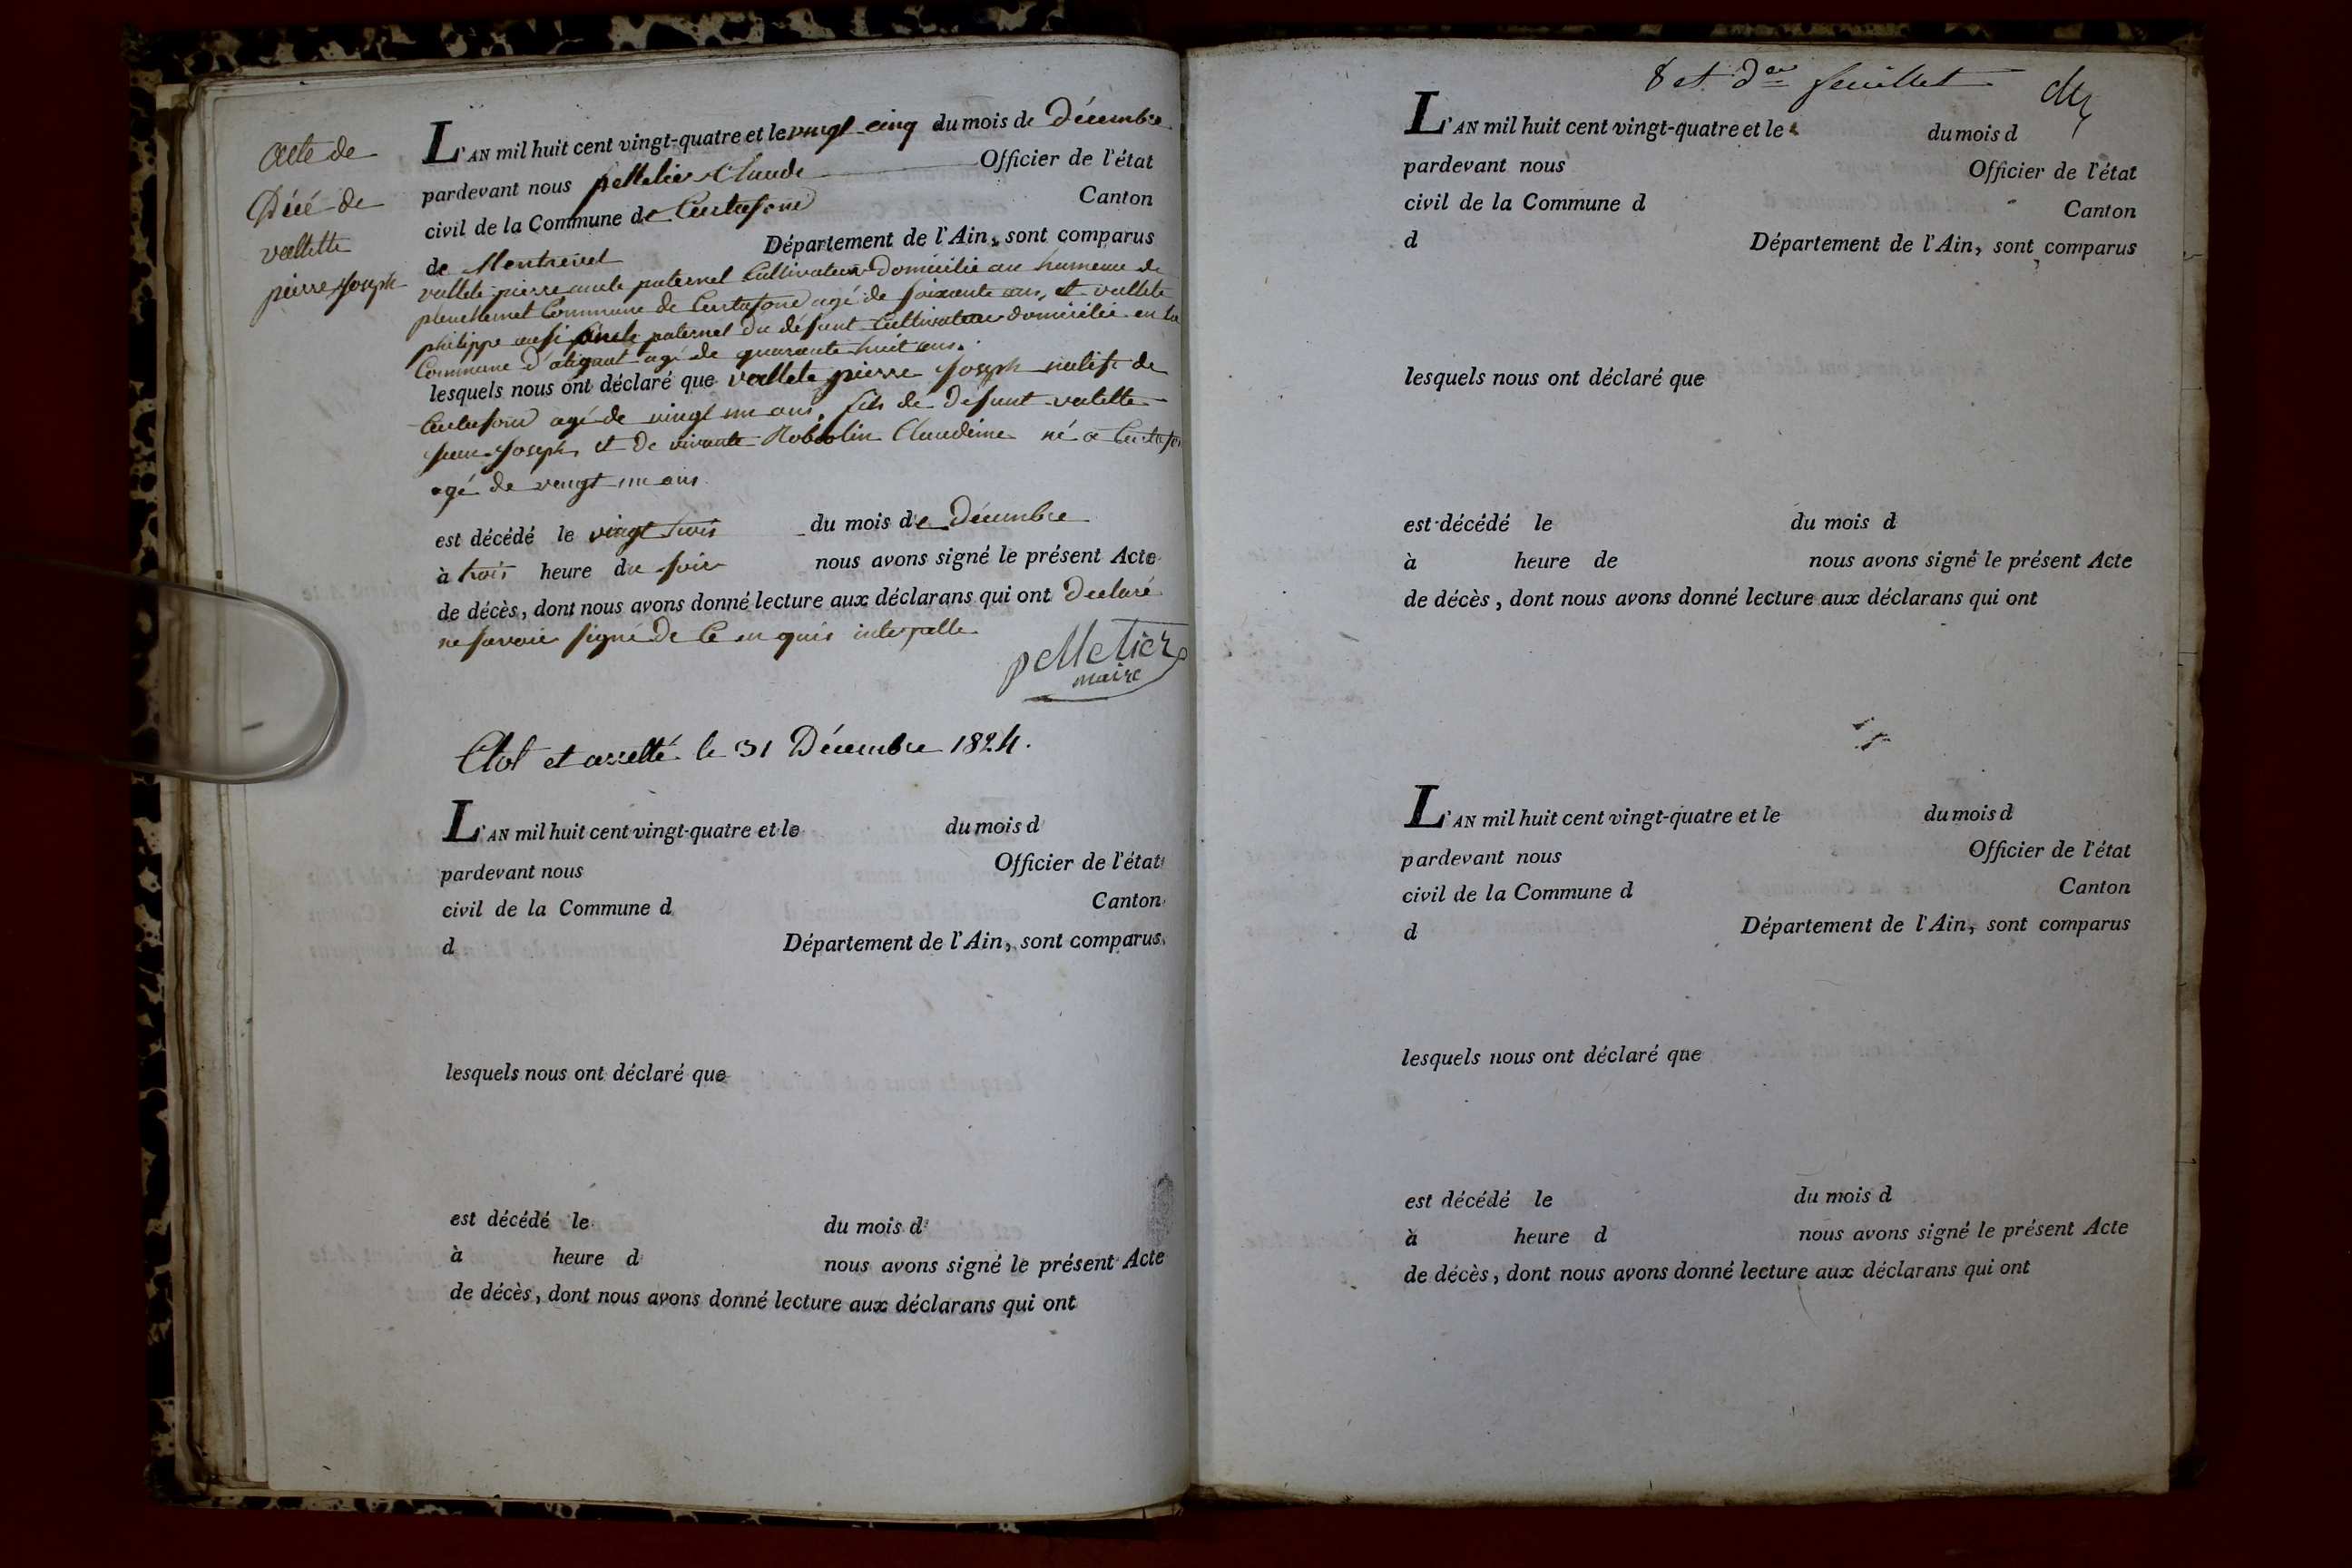 acte de
Décé de
vallette
pierre Joseph
L'AN mil huit cent vingt-quatre et le vingt cinq du mois de Décembre
pardevant nous pelletier Claude Officier de l'état
civil de la Commune de Curtafond Canton
de Montrevel Département de l'Ain, sont comparus
vallete pierre oncle paternel Cultivateur Domicilié au hameau de
Commune de Curtafond agé de soixante ans, et vallete
philippe aussi oncle paternel du défunt Cultivateur domicilié en la
Commune d'atignat agé de quarante huit ans.
lesquels nous ont déclaré que vallete pierre Joseph natif de
Curtafond agé de vingt un ans, fils de défunt valette
Jean Joseph et de vivante Robolin Claudine né a Curtafon
agé de vingt un ans
est décédé le vingt trois du mois de Décembre
à trois heure du soir nous avons signé le présent Acte
de décès, dont nous avons donné lecture aux déclarans qui ont declaré
ne savoir signé de ce en quis interpelle
pelletier
maire
Clot et arretté le 31 Décembre 1824.
L'AN mil huit cent vingt-quatre et le du mois d
pardevant nous Officier de l'état
civil de la Commune d Canton
d Département de l'Ain, sont comparus
lesquels nous ont déclaré que
est décédé le du mois d
à heure d nous avons signé le présent Acte
de décès, dont nous avons donné lecture aux déclarans qui ont
8 et der feuillet
L'AN mil huit cent vingt-quatre et le du mois d
pardevant nous Officier de l'état
civil de la Commune d Canton
d Département de l'Ain, sont comparus
lesquels nous ont déclaré que
est décédé le du mois d
à heure de nous avons signé le présent Acte
de décès, dont nous avons donné lecture aux déclarans qui ont
L'AN mil huit cent vingt-quatre et le du mois d
pardevant nous Officier de l'état
civil de la Commune d Canton
d Département de l'Ain, sont comparus
lesquels nous ont déclaré que
est décédé le du mois d
à heure d nous avons signé le présent Acte
de décès, dont nous avons donné lecture aux déclarans qui ont